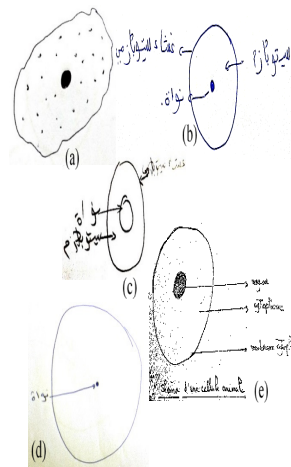 (a)
غشاء سيتوبلازمي
سيتوبلازم
نواة.
(b)
نواة
سيتوبلازم
(c)
noyau
cytoplasme
membrane cytopl
Schéma d'une cellule animal
(e)
نواة
(d)